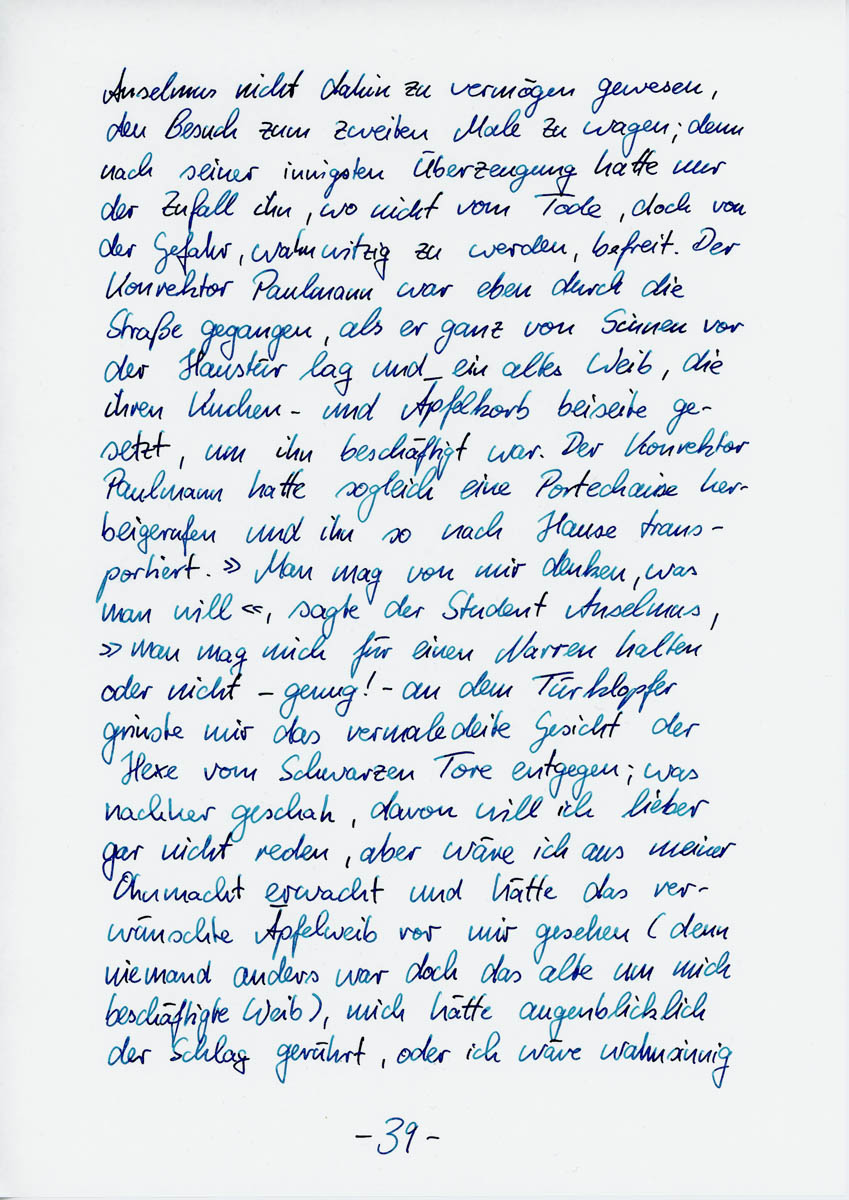 Anselmus nicht dahin zu vermögen gewesen,
den Besuch zum zweiten Male zu wagen; denn
nach seiner innigsten Überzeugung hatte nur
der Zufall ihn, wo nicht vom Tode, doch von
der Gefahr, wahnwitzig zu werden, befreit. Der
Konrektor Paulmann war eben durch die
Straße gegangen, als er ganz von Sinnen vor
der Haustür lag und ein altes Weib, die
ihren Kuchen- und Äpfelkorb beiseite ge-
setzt, um ihn beschäftigt war. Der Konrektor
Paulmann hatte sogleich eine Portechaise her-
beigerufen und ihn so nach Hause trans-
portiert. »Man mag von mir denken, was
man will«, sagte der Student Anselmus,
»man mag mich für einen Narren halten
oder nicht – genug! – an dem Türklopfer
grinste mir das vermaledeite Gesicht der
Hexe vom Schwarzen Tore entgegen; was
nachher geschah, davon will ich lieber
gar nicht reden, aber wäre ich aus meiner
Ohnmacht erwacht und hätte das ver-
wünschte Äpfelweib vor mir gesehen (denn
niemand anders war doch das alte um mich
beschäftigte Weib), mich hätte augenblicklich
der Schlag gerührt, oder ich wäre wahnsinnig
- 39 -